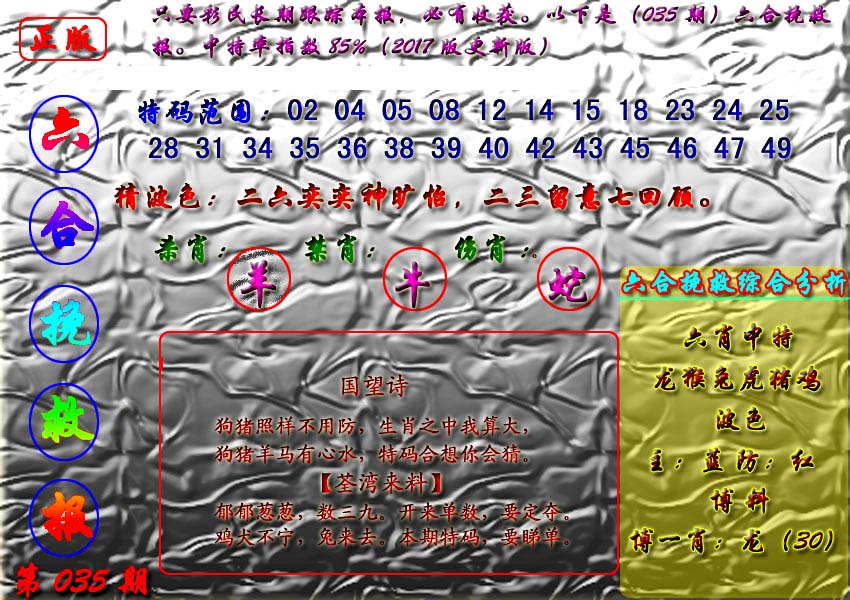 正版
只要彩民长期跟踪本报，必有收获。以下是（035期）六合挽救
报。中特率指数85%（2017版更新版）
六合挽救报
第035期
特码范围：02 04 05 08 12 14 15 18 23 24 25
28 31 34 35 36 38 39 40 42 43 45 46 47 49
猜波色：二六奕奕神旷怡，二三留意七回顾。
杀肖：羊 禁肖：牛 伤肖：蛇
国望诗
狗猪照样不用防，生肖之中我算大，
狗猪羊马有心水，特码合想你会猜。
【荃湾来料】
郁郁葱葱，数三九。开来单数，要定夺。
鸡犬不宁，兔来去。本期特码，要睇单。
六合挽救综合分析
六肖中特
龙猴兔虎猪鸡
波色
主：蓝防：红
博料
博一肖：龙（30）